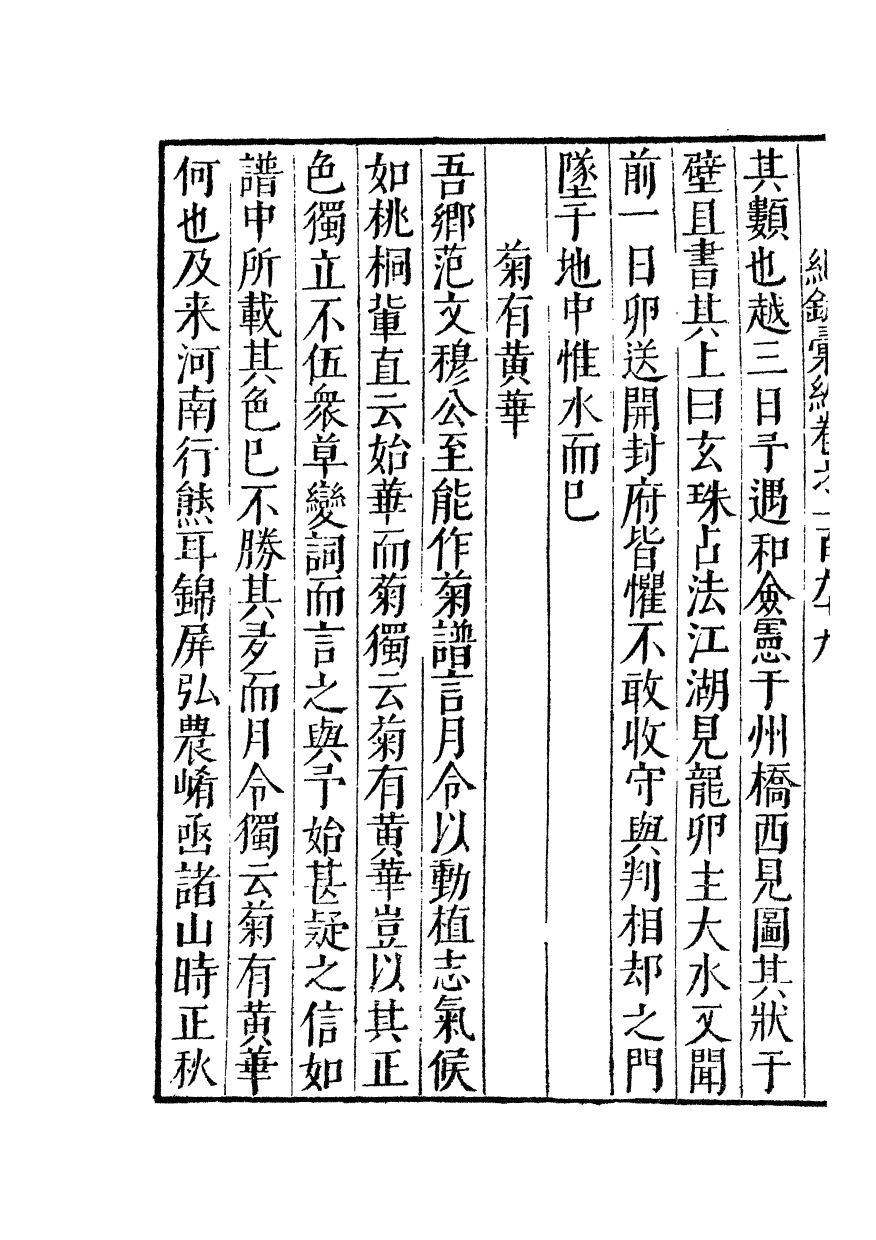 紀錄彙編卷之一百九十九
其數也越三日予遇和僉憲于州橋西見圖其狀于
壁且書其上曰玄珠占法江湖見龍卵主大水又聞
前一日卵送開封府皆懼不敢收守與判相却之門
墜于地中惟水而已
菊有黄華
吾鄉范文穆公至能作菊譜言月令以動植志氣候
如桃桐軰直云始華而菊獨云菊有黄華豈以其正
色獨立不伍衆草變詞而言之與予始甚疑之信如
譜中所載其色已不勝其多而月令獨云菊有黄華
何也及来河南行熊耳錦屏弘農崤凾諸山時正秋